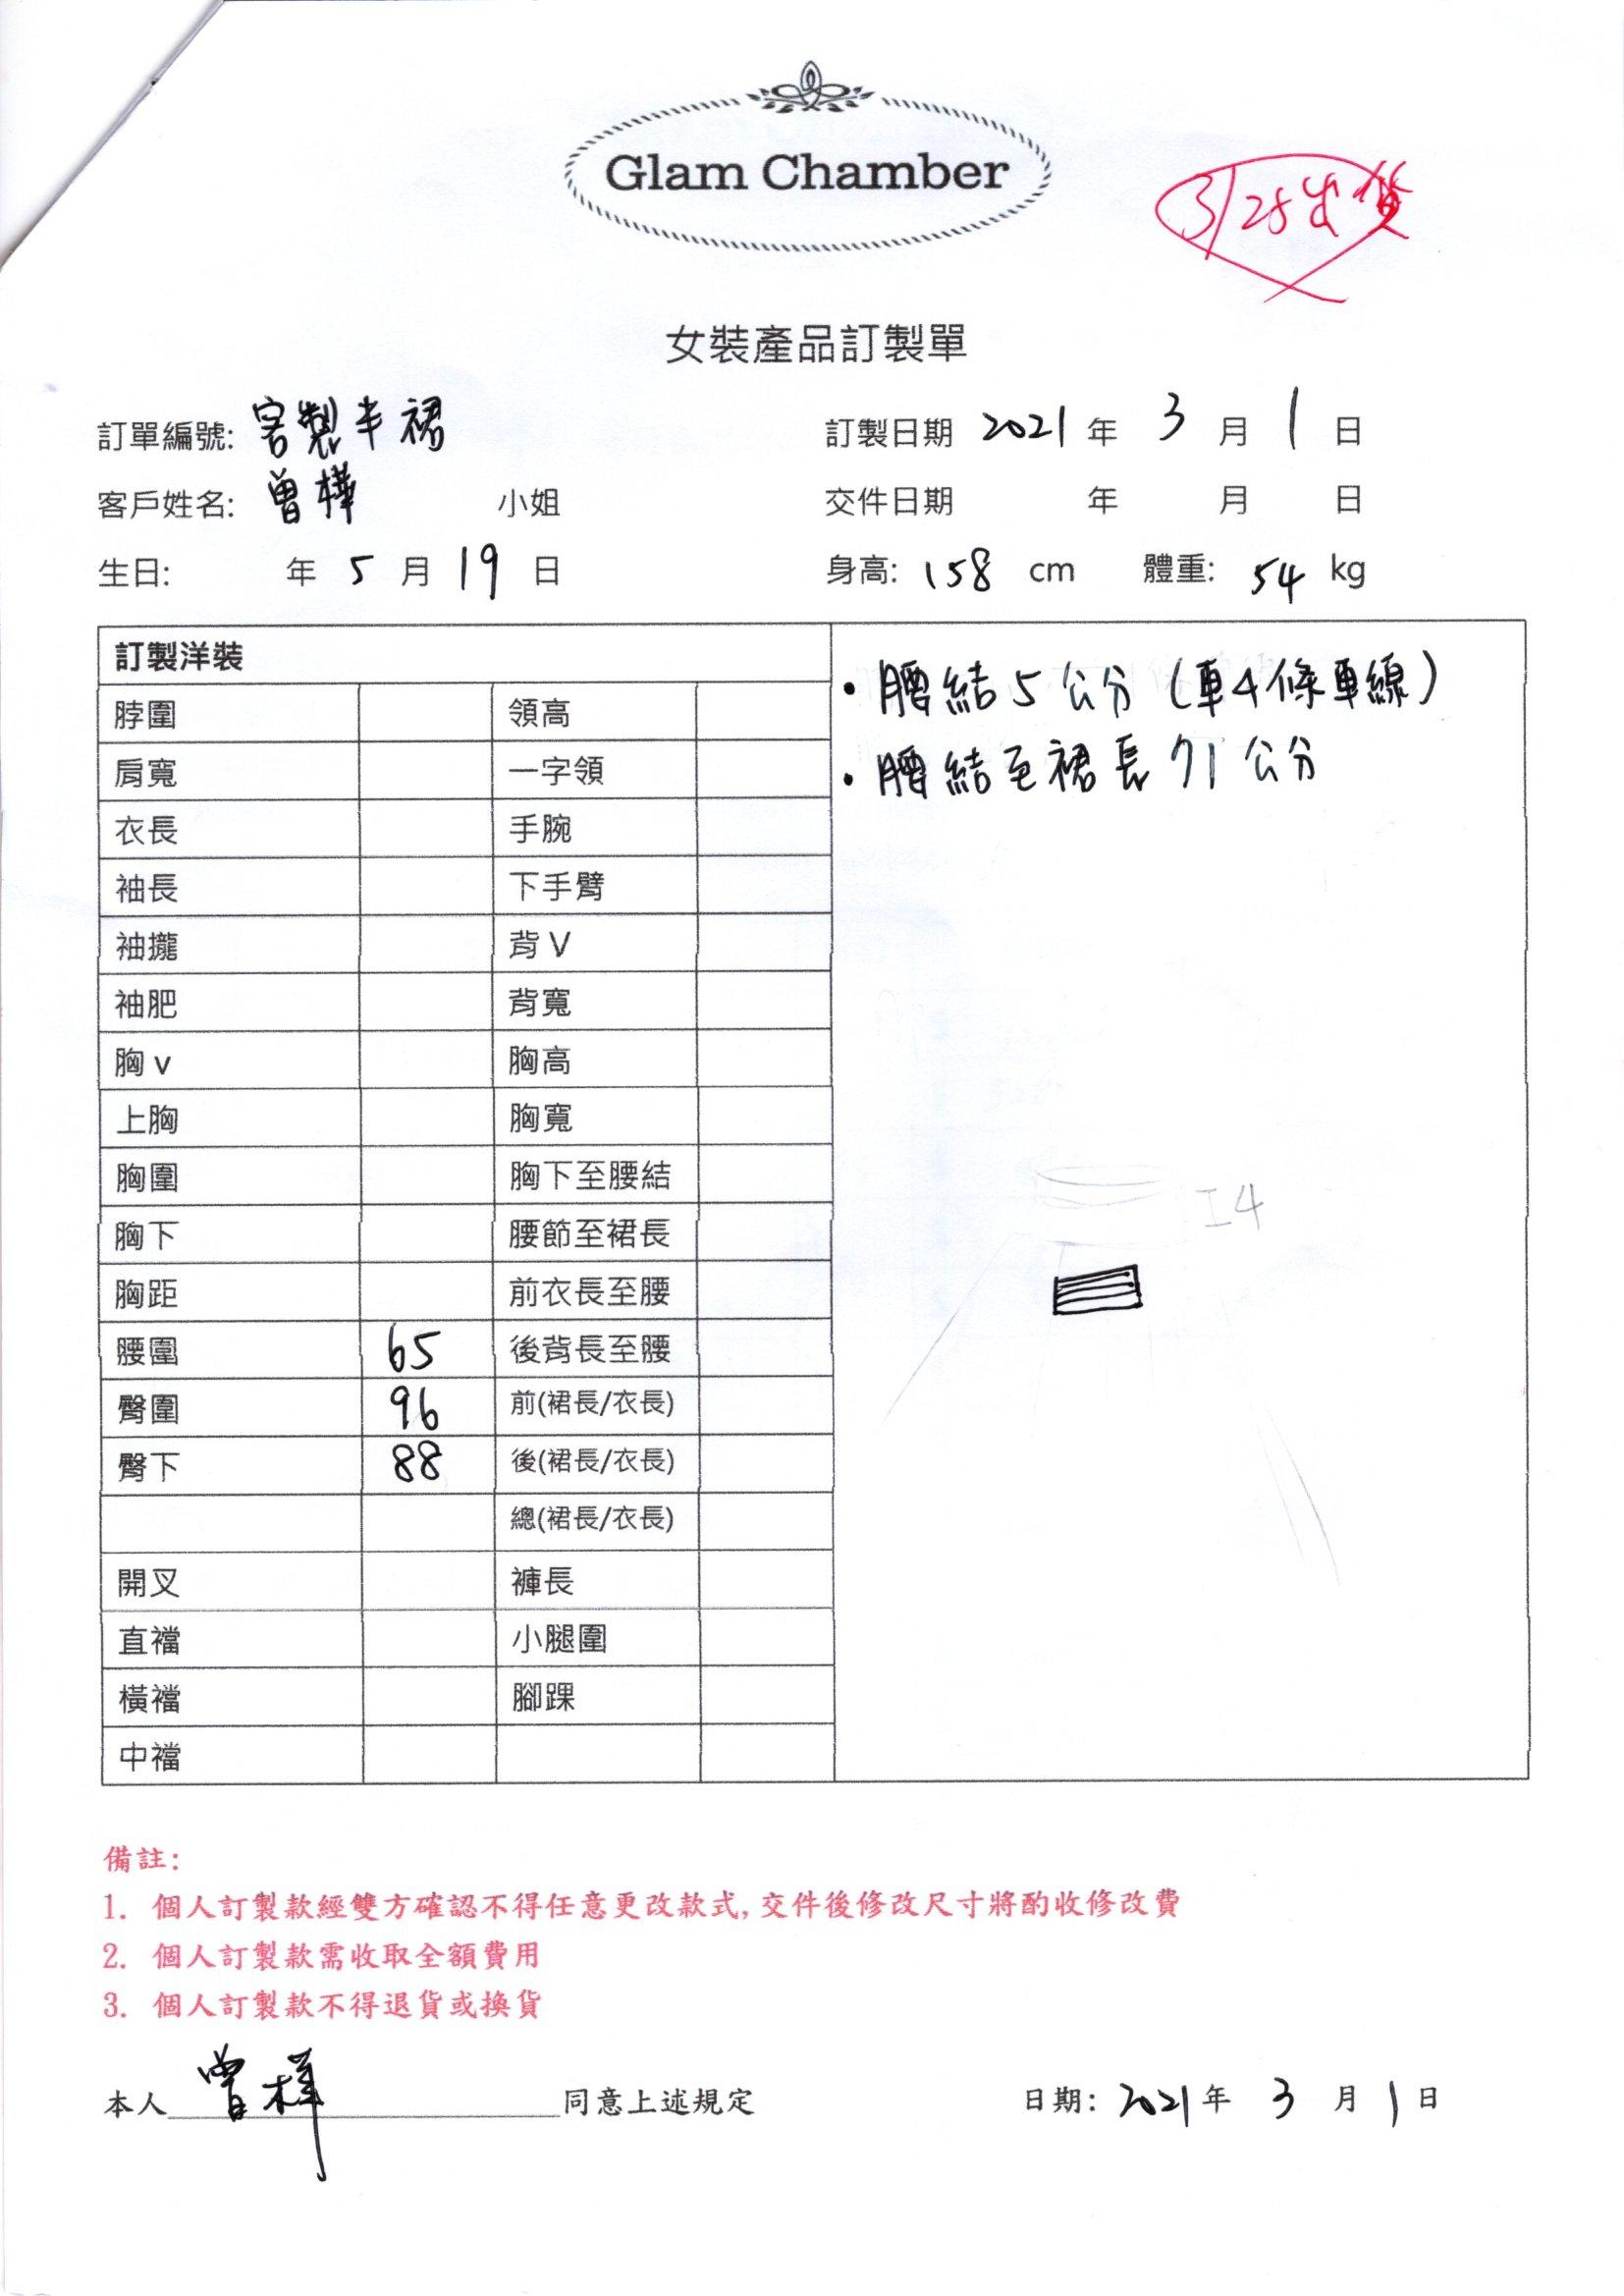 Glam Chamber
3/25出貨
女裝產品訂製單
訂單編號: 客製半裙 訂製日期 2021 年 3 月 1 日
客戶姓名: 曾樺 小姐 交件日期 年 月 日
生日: 年 5 月 19 日 身高: 158 cm 體重: 54 kg
訂製洋裝
脖圍 領高
肩寬 一字領
衣長 手腕
袖長 下手臂
袖攏 背 V
袖肥 背寬
胸 v 胸高
上胸 胸寬
胸圍 胸下至腰結
胸下 腰節至裙長
胸距 前衣長至腰
腰圍 65 後背長至腰
臀圍 96 前(裙長/衣長)
臀下 88 後(裙長/衣長)
總(裙長/衣長)
開叉 褲長
直襠 小腿圍
橫襠 腳踝
中襠
• 腰結 5 公分 (車4條車線)
• 腰結至裙長 71 公分
備註:
1. 個人訂製款經雙方確認不得任意更改款式, 交件後修改尺寸將酌收修改費
2. 個人訂製款需收取全額費用
3. 個人訂製款不得退貨或換貨
本人 曾樺 同意上述規定 日期: 2021 年 3 月 1 日